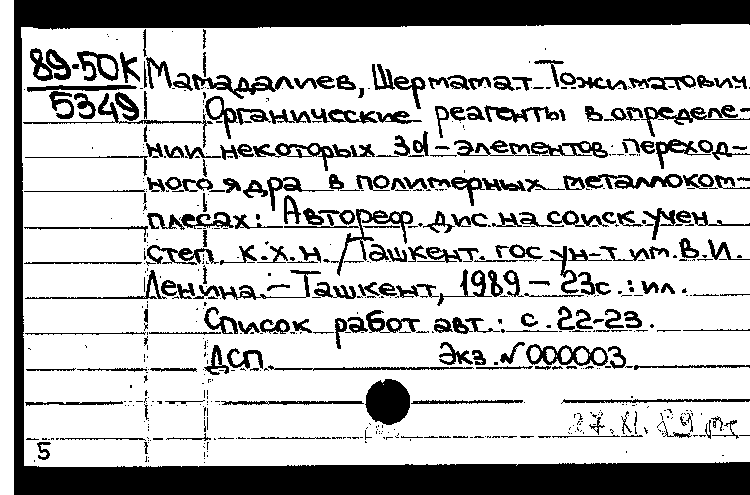 89-50К
5349
Мамадалиев, Шермамат Тожиматович.
Органические реагенты в определе-
нии некоторых 3d-элементов переход-
ного ядра в полимерных металлоком-
плесах: Автореф. дис. на соиск. учен.
степ. к.х.н. /Ташкент. гос ун-т им. В.И.
Ленина. - Ташкент, 1989. - 23с. : ил.
Список работ авт.: с. 22-23.
ДСП. Экз. № 000003.
27.XI.89
5